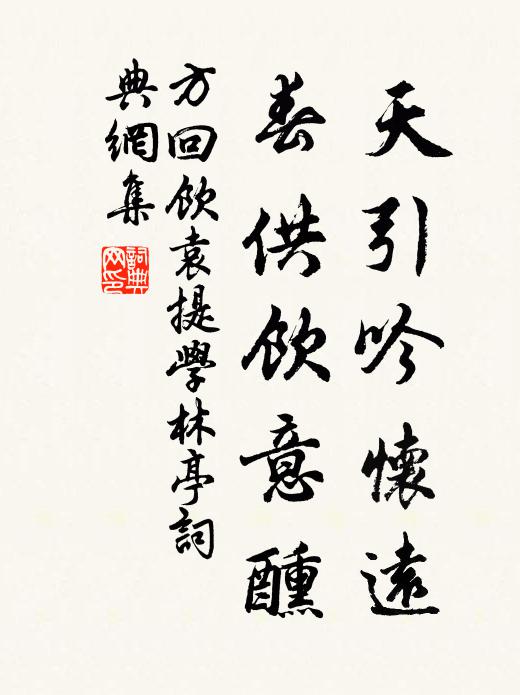 天引吟懷遠
春供飲意醺
方回飲袁提學林亭詞
典網集
詞典
网印